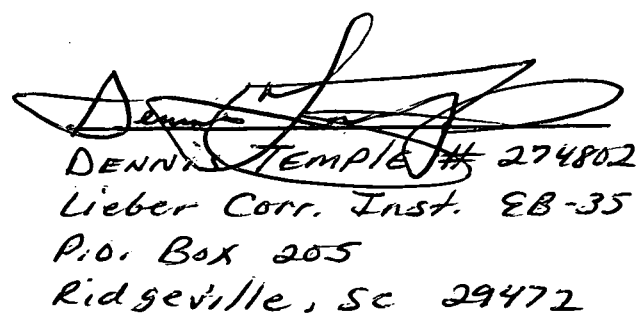 Dennis
DENNIS TEMPLE # 274802
Lieber Corr. Inst. EB-35
P.O. Box 205
Ridgeville, SC 29472